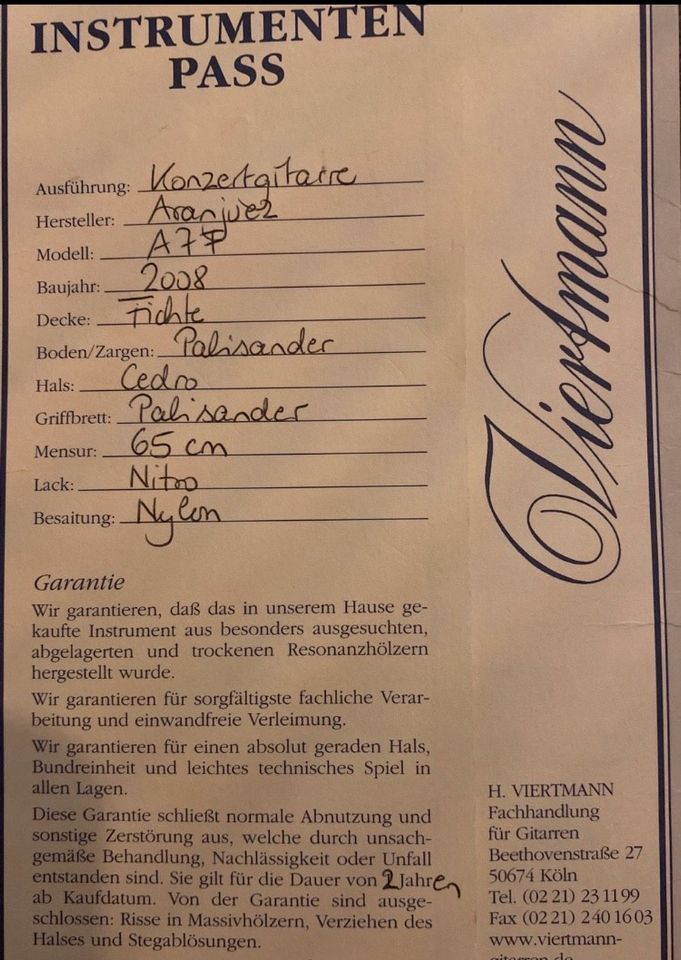 INSTRUMENTEN
PASS
Ausführung: Konzertgitarre
Hersteller: Aranjuez
Modell: A7F
Baujahr: 2008
Decke: Fichte
Boden/Zargen: Palisander
Hals: Cedro
Griffbrett: Palisander
Mensur: 65 cm
Lack: Nitro
Besaitung: Nylon
Garantie
Wir garantieren, daß das in unserem Hause ge-
kaufte Instrument aus besonders ausgesuchten,
abgelagerten und trockenen Resonanzhölzern
hergestellt wurde.
Wir garantieren für sorgfältigste fachliche Verar-
beitung und einwandfreie Verleimung.
Wir garantieren für einen absolut geraden Hals,
Bundreinheit und leichtes technisches Spiel in
allen Lagen.
Diese Garantie schließt normale Abnutzung und
sonstige Zerstörung aus, welche durch unsach-
gemäße Behandlung, Nachlässigkeit oder Unfall
entstanden sind. Sie gilt für die Dauer von 2 Jahren
ab Kaufdatum. Von der Garantie sind ausge-
schlossen: Risse in Massivhölzern, Verziehen des
Halses und Stegablösungen.
Viertmann
H. VIERTMANN
Fachhandlung
für Gitarren
Beethovenstraße 27
50674 Köln
Tel. (02 21) 23 11 99
Fax (02 21) 2 40 16 03
www.viertmann-
gitarren.de